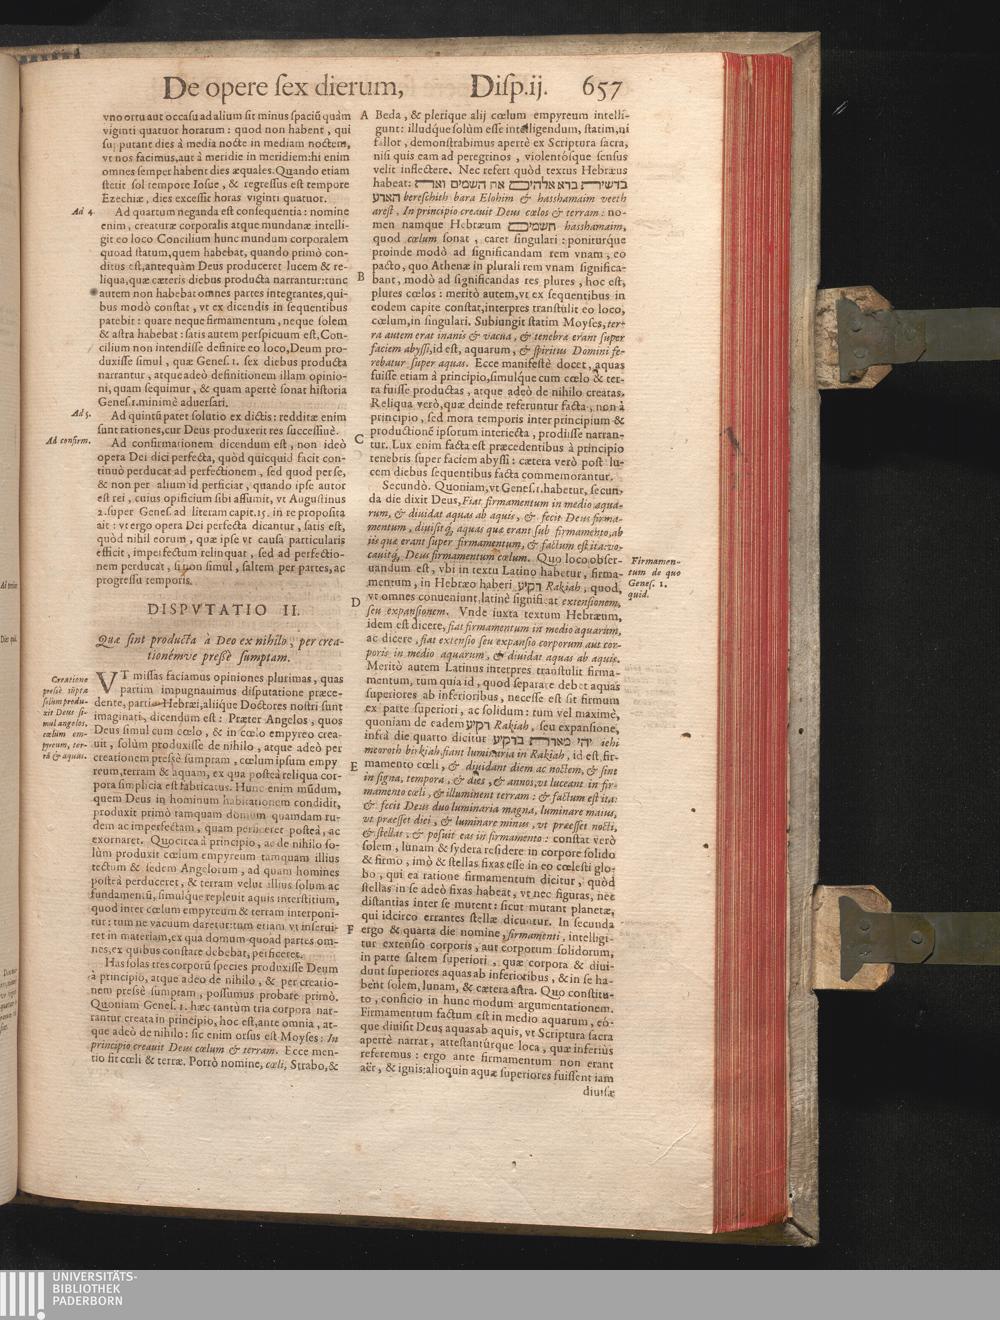 De opere ſex dierum, Diſp.ij. 657
vno ortu aut occaſu ad alium ſit minus ſpaciũ quàm
viginti quatuor horarum: quod non habent, qui
ſupputant dies à media nocte in mediam noctem,
vt nos facimus, aut à meridie in meridiem: hi enim
omnes ſemper habent dies æquales. Quando etiam
ſtetit ſol tempore Ioſue, & regreſſus eſt tempore
Ezechiæ, dies exceſſit horas viginti quatuor.
Ad 4.
Ad quartum neganda eſt conſequentia: nomine
enim, creaturæ corporalis atque mundanæ intelli-
git eo loco Concilium hunc mundum corporalem
quoad ſtatum, quem habebat, quando primò con-
ditus eſt, antequàm Deus produceret lucem & re-
liqua, quæ cæteris diebus producta narrantur: tunc
autem non habebat omnes partes integrantes, qui-
bus modò conſtat, vt ex dicendis in ſequentibus
patebit: quare neque firmamentum, neque ſolem
& aſtra habebat: ſatis autem perſpicuum eſt, Con-
cilium non intendiſſe definire eo loco, Deum pro-
duxiſſe ſimul, quæ Geneſ. 1. ſex diebus producta
narrantur, atque adeò definitionem illam opinio-
ni, quam ſequimur, & quam apertè ſonat hiſtoria
Geneſ. 1. minimè aduerſari.
Ad 5.
Ad quintũ patet ſolutio ex dictis: redditæ enim
ſunt rationes, cur Deus produxerit res ſucceſſiuè.
Ad confirm.
Ad confirmationem dicendum eſt, non ideò
opera Dei dici perfecta, quòd quicquid facit con-
tinuò perducat ad perfectionem, ſed quod per ſe,
& non per alium id perficiat, quando ipſe autor
eſt rei, cuius opificium ſibi aſſumit, vt Auguſtinus
2. ſuper Geneſ. ad literam capit. 15. in re propoſita
ait: vt ergo opera Dei perfecta dicantur, ſatis eſt,
quòd nihil eorum, quæ ipſe vt cauſa particularis
efficit, imperfectum relinquat, ſed ad perfectio-
nem perducat, ſi non ſimul, ſaltem per partes, ac
progreſſu temporis.
DISPVTATIO II.
Quæ ſint producta à Deo ex nihilo, per crea-
tionémve preßè ſumptam.
Creatione
preßè ſũpta
ſolùm produ-
xit Deus ſi-
mul angelos,
cœlum em-
pyreum, ter-
rã & aquas.
VT miſſas faciamus opiniones plurimas, quas
partim impugnauimus diſputatione præce-
dente, partim Hebræi, aliíque Doctores noſtri ſunt
imaginati, dicendum eſt: Præter Angelos, quos
Deus ſimul cum cœlo, & in cœlo empyreo crea-
uit, ſolùm produxiſſe de nihilo, atque adeò per
creationem preſsè ſumptam, cœlum ipſum empy
reum, terram & aquam, ex qua poſteà reliqua cor-
pora ſimplicia eſt fabricatus. Hunc enim mũdum,
quem Deus in hominum habitationem condidit,
produxit primò tamquam domum quamdam ru-
dem ac imperfectam, quam perficeret poſteà, ac
exornaret. Quocirca à principio, ac de nihilo ſo-
lùm produxit cœlum empyreum tamquam illius
tectum & ſedem Angelorum, ad quam homines
poſteà perduceret, & terram velut illius ſolum ac
fundamentũ, ſimulque repleuit aquis interſtitium,
quod inter cœlum empyreum & terram interponi-
tur: tum ne vacuum daretur: tum etiam vt inſerui-
ret in materiam, ex qua domum quoad partes om-
nes, ex quibus conſtare debebat, perficeret.
Has ſolas tres corporũ ſpecies produxiſſe Deum
à principio, atque adeo de nihilo, & per creatio-
nem preſsè ſumptam, poſſumus probare primò.
Quoniam Geneſ. 1. hæc tantùm tria corpora nar-
rantur creata in principio, hoc eſt, ante omnia, at-
que adeò de nihilo: ſic enim orſus eſt Moyſes: In
principio creauit Deus cœlum & terram. Ecce men-
tio fit cœli & terræ. Porrò nomine, cœli, Strabo, &
A
B
C
D
E
F
Beda, & plerique alij cœlum empyreum intelli-
gunt: illudque ſolùm eſſe intelligendum, ſtatim, ni
fallor, demonſtrabimus apertè ex Scriptura ſacra,
niſi quis eam ad peregrinos, violentóſque ſenſus
velit inflectere. Nec refert quòd textus Hebræus
habeat: ברשית ברא אלהים את השמים ואת
הארע bereſchith bara Elohim & haſſhamaim veeth
areſt, In principio creauit Deus cœlos & terram: no-
men namque Hebræum השמים haſſhamaim,
quod cœlum ſonat, caret ſingulari: poniturque
proinde modò ad ſignificandam rem vnam, eo
pacto, quo Athenæ in plurali rem vnam ſignifica-
bant, modò ad ſignificandas res plures, hoc eſt,
plures cœlos: meritò autem, vt ex ſequentibus in
eodem capite conſtat, interpres tranſtulit eo loco,
cœlum, in ſingulari. Subiungit ſtatim Moyſes, ter-
ra autem erat inanis & vacua, & tenebræ erant ſuper
faciem abyſſi, id eſt, aquarum, & ſpiritus Domini fe-
rebatur ſuper aquas. Ecce manifeſtè docet, aquas
fuiſſe etiam à principio, ſimulque cum cœlo & ter-
ra fuiſſe productas, atque adeò de nihilo creatas.
Reliqua verò, quæ deinde referuntur facta, non à
principio, ſed mora temporis inter principium &
productionẽ ipſorum interiecta, prodiiſſe narran-
tur. Lux enim facta eſt præcedentibus à principio
tenebris ſuper faciem abyſſi: cætera verò poſt lu-
cem diebus ſequentibus facta commemorantur.
Secundò. Quoniam, vt Geneſ. 1. habetur, ſecun-
da die dixit Deus, Fiat firmamentum in medio aqua-
rum, & diuidat aquas ab aquis, & fecit Deus firma-
mentum, diuiſitq́, aquas quæ erant ſub firmamento, ab
iis quæ erant ſuper firmamentum, & factum eſt ita: vo-
cauitq́, Deus firmamentum cœlum. Quo loco obſer-
uandum eſt, vbi in textu Latino habetur, firma-
mentum, in Hebræo haberi רקיע Rakiah, quod,
vt omnes conueniunt, latinè ſignificat extenſionem,
ſeu expanſionem. Vnde iuxta textum Hebræum,
idem eſt dicere, fiat firmamentum in medio aquarum,
ac dicere, fiat extenſio ſeu expanſio corporum aut cor-
poris in medio aquarum, & diuidat aquas ab aquis.
Meritò autem Latinus interpres tranſtulit firma-
mentum, tum quia id, quod ſeparare debet aquas
ſuperiores ab inferioribus, neceſſe eſt ſit firmum
ex parte ſuperiori, ac ſolidum: tum vel maximè,
quoniam de eadem רקיע Rakiah, ſeu expanſione,
infrà die quarto dicitur יהי מארת ברקיע iehi
meoroth birkiah, fiant luminaria in Rakiah, id eſt, fir-
mamento cœli, & diuidant diem ac noctem, & ſint
in ſigna, tempora, & dies, & annos, vt luceant in fir-
mamento cœli, & illuminent terram: & factum eſt ita:
& fecit Deus duo luminaria magna, luminare maius,
vt præeſſet diei, & luminare minus, vt præeſſet nocti,
& ſtellas, & poſuit eas in firmamento: conſtat verò
ſolem, lunam & ſydera reſidere in corpore ſolido
& firmo, imò & ſtellas fixas eſſe in eo cœleſti glo-
bo, qui ea ratione firmamentum dicitur, quòd
ſtellas in ſe adeò fixas habeat, vt nec figuras, nec
diſtantias inter ſe mutent: ſicut mutant planetæ,
qui idcirco errantes ſtellæ dicuntur. In ſecunda
ergo & quarta die nomine, firmamenti, intelligi-
tur extenſio corporis, aut corporum ſolidorum,
in parte ſaltem ſuperiori, quæ corpora & diui-
dunt ſuperiores aquas ab inferioribus, & in ſe ha-
bent ſolem, lunam, & cætera aſtra. Quo conſtitu-
to, conficio in hunc modum argumentationem.
Firmamentum factum eſt in medio aquarum, eó-
que diuiſit Deus aquas ab aquis, vt Scriptura ſacra
apertè narrat, atteſtantúrque loca, quæ inferiùs
referemus: ergo ante firmamentum non erant
aër, & ignis: alioquin aquæ ſuperiores fuiſſent iam
diuiſæ
Firmamen-
tum de quo
Geneſ. 1.
quid.
UNIVERSITÄTS-
BIBLIOTHEK
PADERBORN